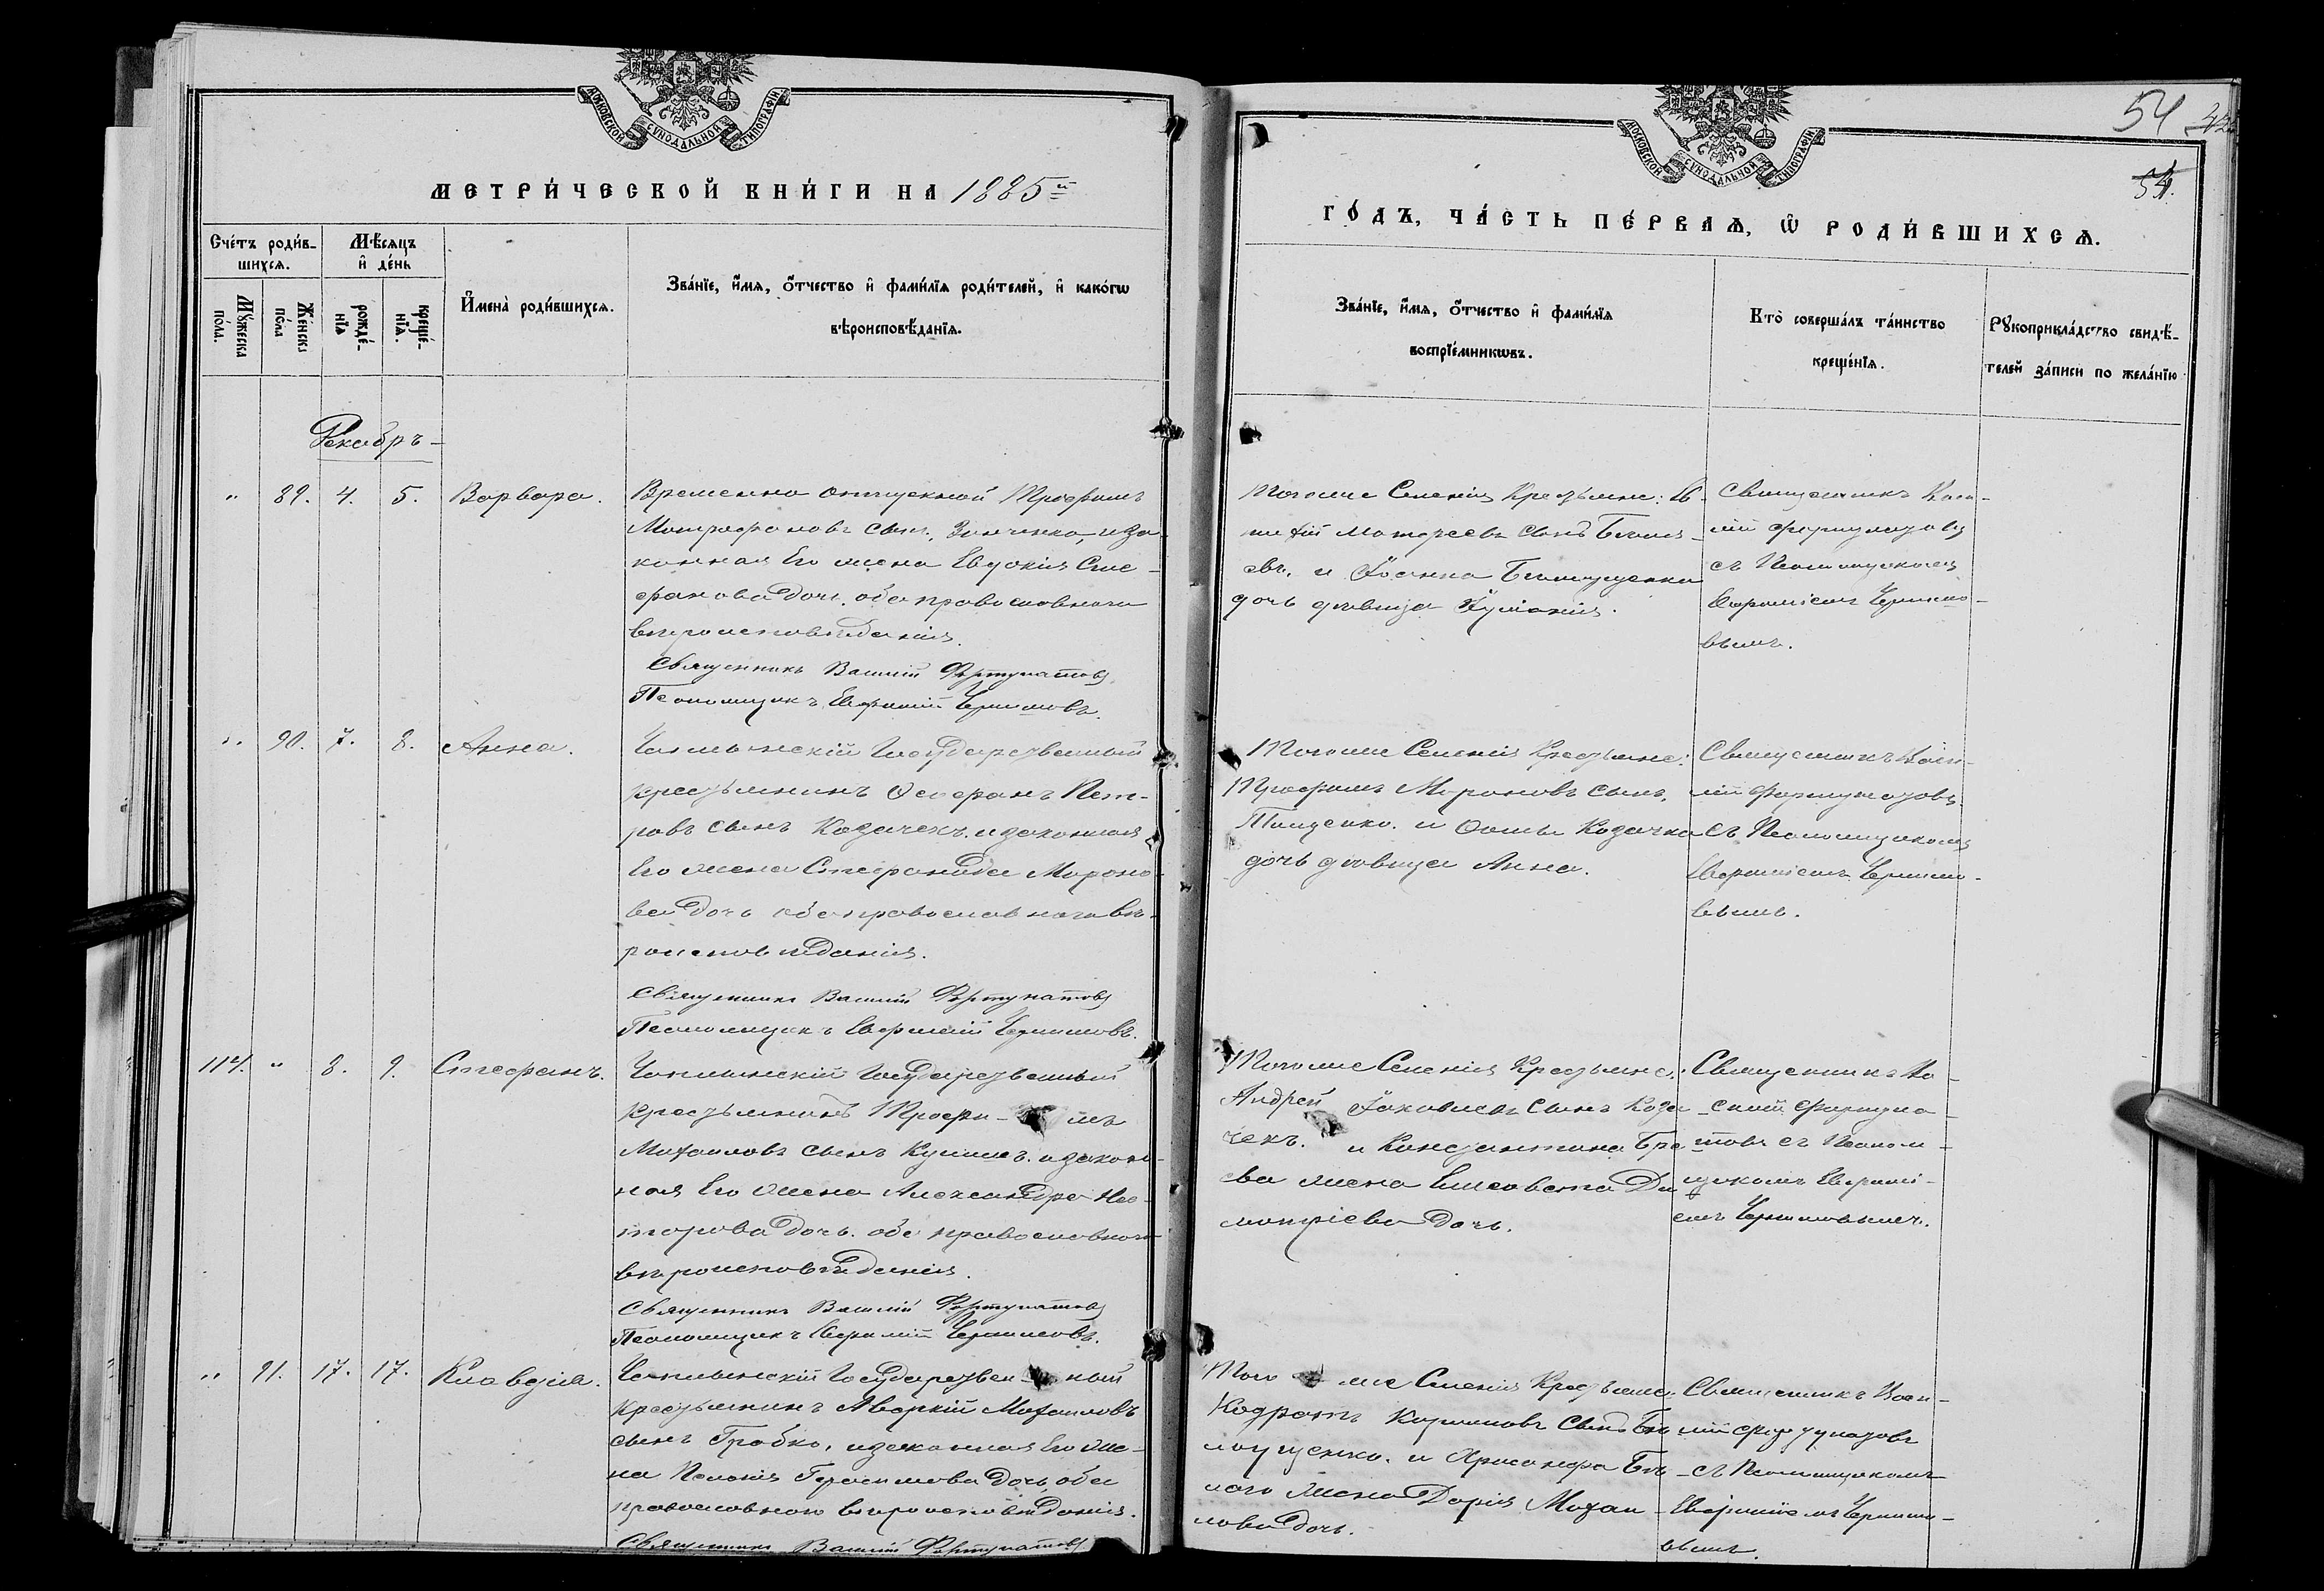 МОСКОВСКОЙ СѴНОДАЛЬНОЙ ТИПОГРАФІИ
МЕТРИ́ЧЕСКОЙ КНИ́ГИ НА 1885й
Сче́тъ роди́в-
шихсѧ.
Мѣсѧцъ
и҆ де́нь
Мꙋ́жеска
по́ла.
Же́нска
по́ла
рожде́-
нїѧ
креще́-
нїѧ.
И҆мена̀ роди́вшихсѧ.
Зва́нїе, и҆́мѧ, ѻ҆́тчество и҆ фами́лїѧ роди́телей, и҆ како́гѡ
вѣроисповѣ́данїѧ.
Декабръ
" 89. 4. 5. Варвара.
Временно отпускной Трофимъ
Митрофановъ сынъ, Зинченко, иза
конная Его жена Евдокія Сте-
фанова дочь. оба православнаго
вѣроисповѣданія.
Священникъ Василій Фортунатовъ
Псаломщикъ Евфимій Чернишовъ.
" 90. 7. 8. Анна.
Чаплынскій Государственный
крестьянинъ Стефанъ Пет-
ровъ сынъ Козачекъ. изаконная
Его жена Стефанида Миронo-
ва дочь оба православнаго вѣ-
роисповѣданія.
Священникъ Василій Фортунатовъ
Псаломщикъ Евфимій Чернишовъ.
114. " 8. 9. Стефанъ.
Чаплынскій Государственный
крестьянинъ Трофи- мъ
Михаиловъ сынъ изакон-
ная Его жена Александра Нес-
торова дочь. оба православнаго
вѣроисповѣданія.
Священникъ Василій Фортунатовъ
Псаломщикъ Евфимій Чернишовъ.
" 91. 17. 17. Клавдія.
Чаплынскій Государствен- ный
Крестьянинъ Аверкій Михаиловъ
сынъ Грабко, изаконная Его же-
на Пелагія Герасимова дочь, оба
православнаго вѣроисповѣданія.
Священникъ Василій Фортунатовъ
54
54.
МОСКОВСКОЙ СѴНОДАЛЬНОЙ ТИПОГРАФІИ
ГО́ДЪ, ЧА́СТЬ ПЕ́РВАѦ, Ѡ҆ РОДИ́ВШИХСѦ.
Зва́нїе, и҆́мѧ, ѻ҆́тчество и҆ фами́лїѧ
воспрїе́мникѡвъ.
Кто̀ соверша́лъ та́инство
креще́нїѧ.
Рꙋкоприкла́дство свидѣ́-
телей за́писи по жела́нїю
Тогоже Селенія Крестьяне:
Матфеевъ сынъ
евъ. и Іоанна
дочь дѣвица
Священникъ Васи-
лій Фортунатовъ
съ Псаломщикомъ
Евфиміемъ Чернишо-
вымъ.
Тогоже Селенія Крестьяне:
Трофимъ Мироновъ сынъ,
Тищенко. и Козачка
дочь дѣвица Анна.
Священникъ Васи-
лій Фортунатовъ
съ Псаломщикомъ
Евфиміемъ Чернишо-
вымъ.
Тогоже Селенія Крестьяне:
Андрей Іаковлевъ сынъ Коза
чекъ. и Константина
ева жена Елисавета Ди
митріева дочь.
Священникъ Ва-
силій Фортуна-
товъ съ Псалом-
щикомъ Евфимі-
емъ Чернишовымъ.
Того же Селенія Крестьяне:
Кодратъ сынъ Бѣ
лоущенко. и Бѣ-
лаго жена Дарія Михаи-
лова дочь.
Священникъ Васи-
лій Фортунатовъ
съ Псаломщикомъ
Евфиміемъ Черниш-
вымъ.